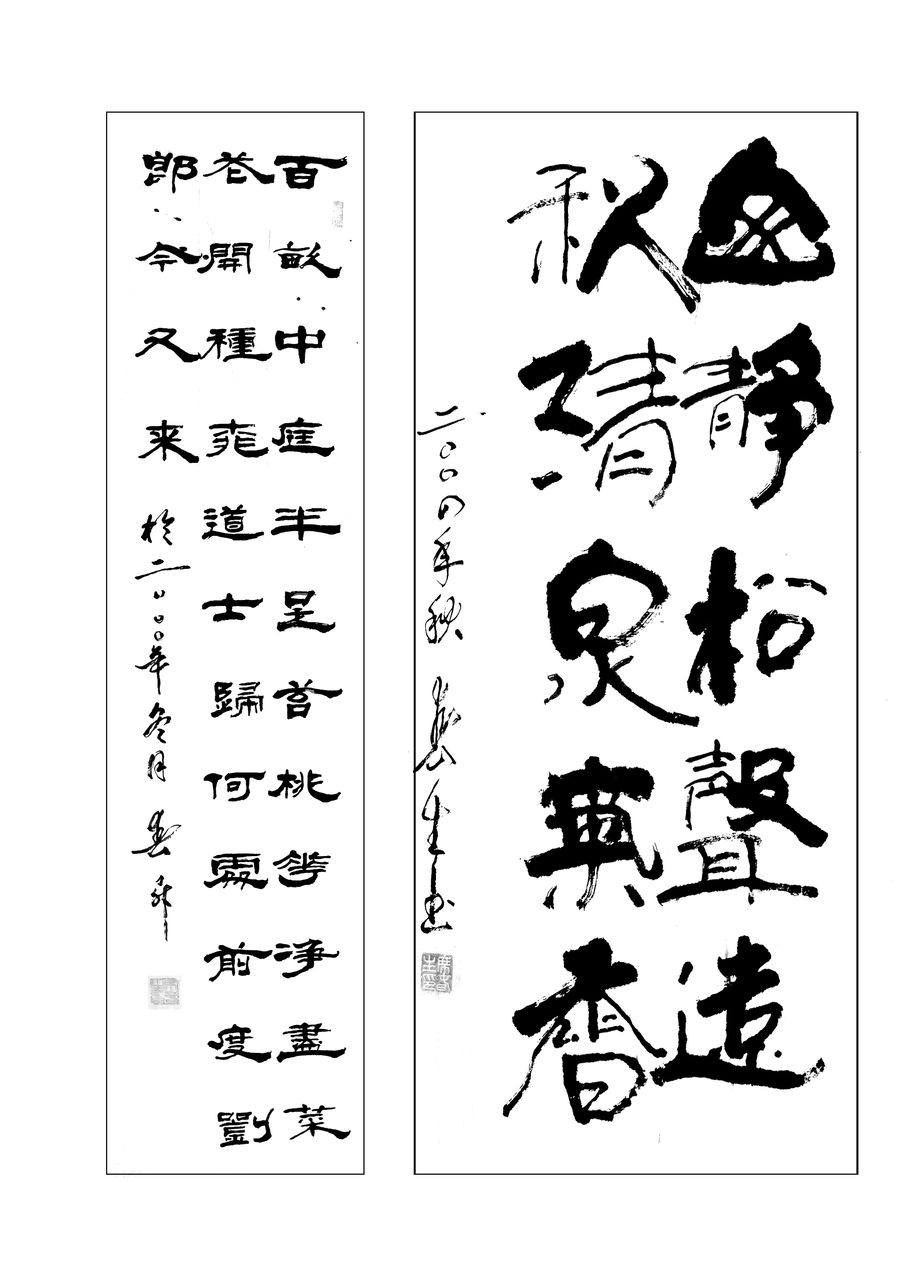 幽靜松聲遠
秋清泉香
二〇〇四年秋 春生书
百畝中庭半是苔桃花净盡菜
花開種桃道士歸何處前度劉
郎今又来 於二〇〇〇年冬月 春